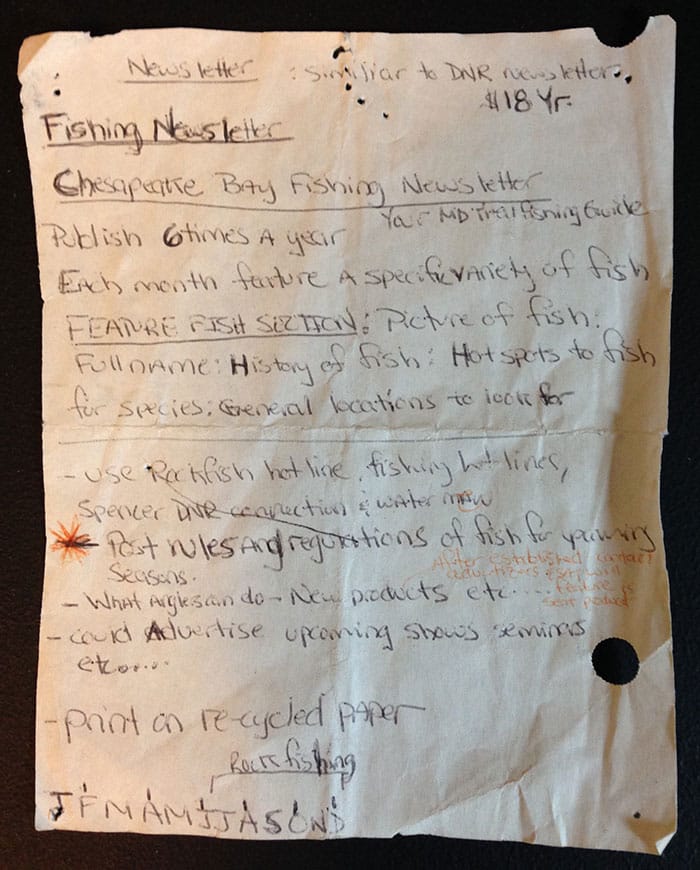 Newsletter : similiar to DNR newsletter.
$18 Yr.
Fishing Newsletter
Chesapeake Bay Fishing Newsletter
Your MD Fishing Guide
Publish 6 times A year
Each month feature A specific variety of fish
FEATURE FISH SECTION: Picture of fish:
Full name: History of fish: Hot spots to fish
for species: General locations to look for
- use Rockfish hot line, fishing hot lines,
Spencer DNR connection & water men
* - Post rules And regulations of fish for upcoming
Seasons.
After established contact
- What Anglers can do - New products etc....
feature is
sent product
- could Advertise upcoming shows seminars
etc.....
- print on re-cycled paper
Rockfishing
J F M A M J J A S O N D